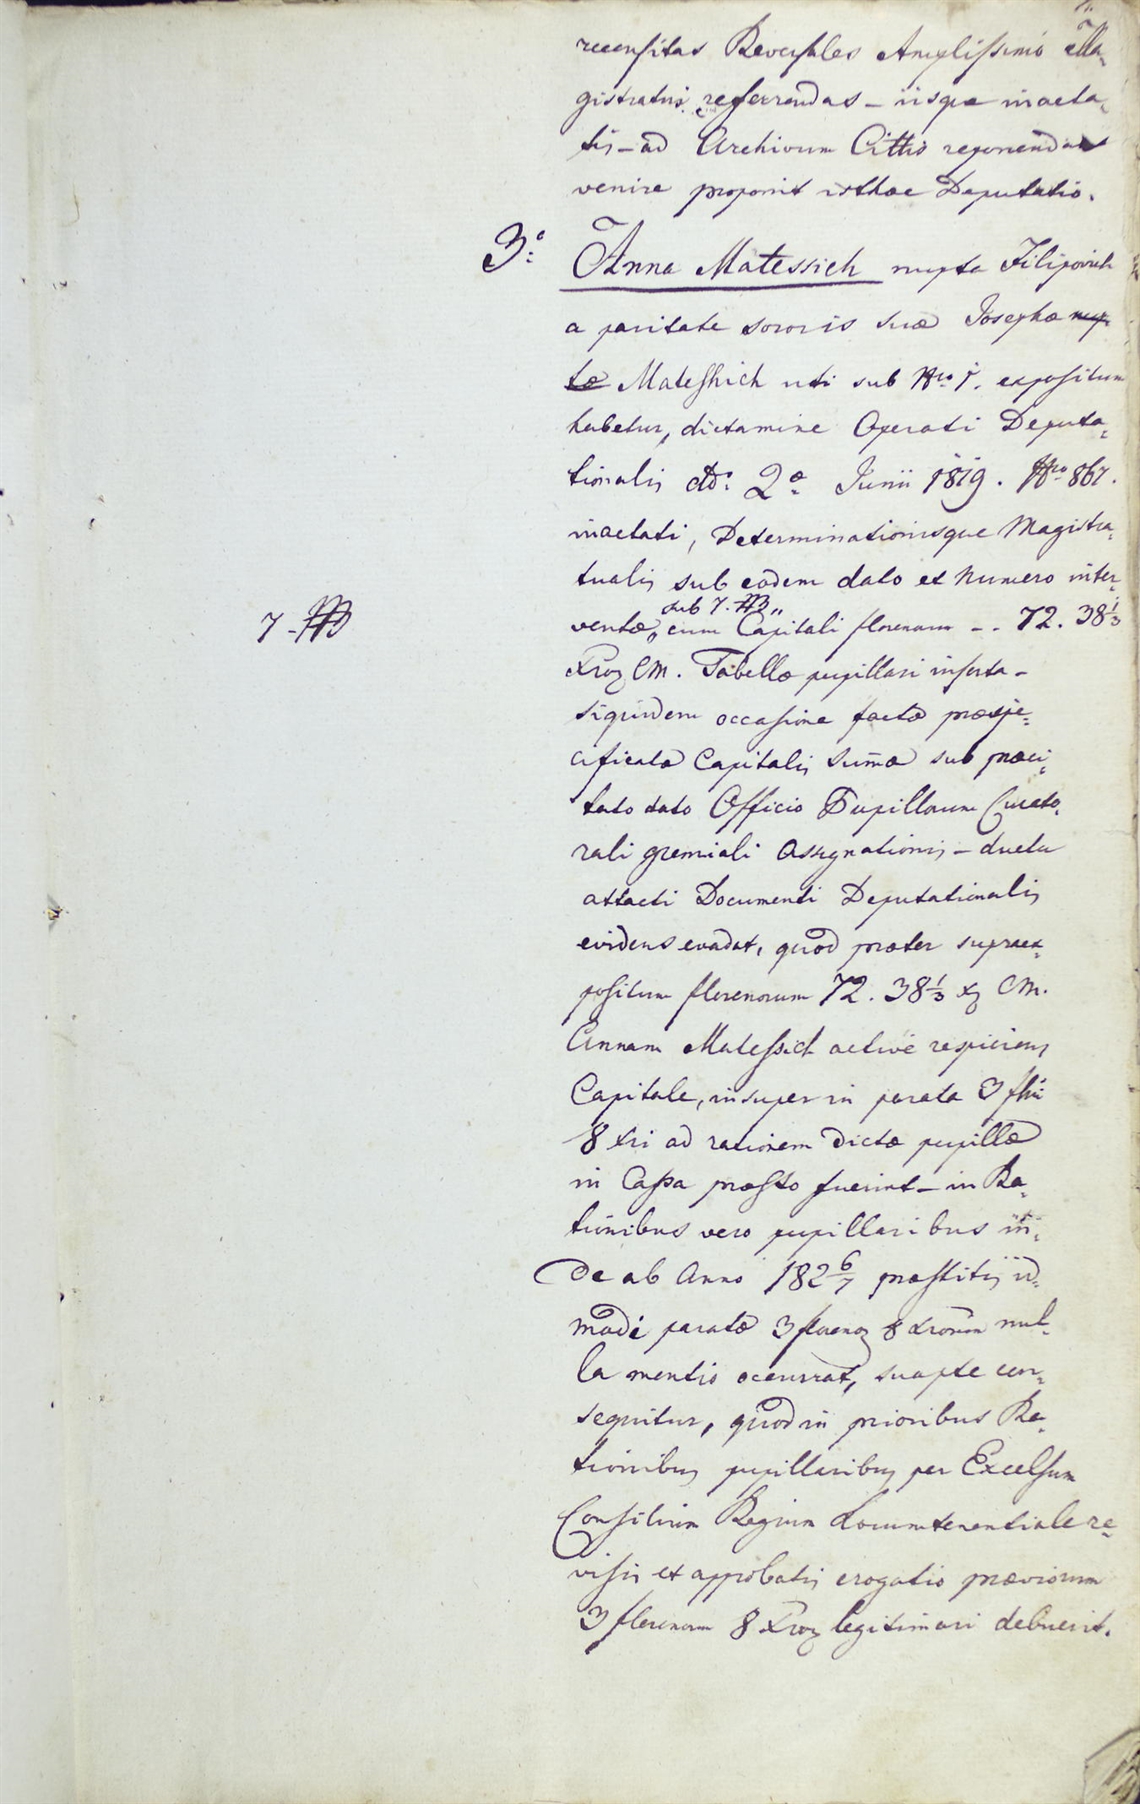 recensitas Reversales Amplissimo Ma-
gistratui referrendas – iisque inacta-
tis – ad Archivum Cittis reponendas
venire proponit isthae Deputatio.
3o: Anna Matessich nupta Filipovich
a paritate sororis suae Josephae nup-
tae Mateshich uti sub Nro 1. expositum
habetur, dictamine Operati Deputa-
tionalis ddo: 2a Junii 1819. Nro 867.
inactati, Determinationisque Magistra-
tualis sub eodem dato et Numero inter-
sub 7.
7.
ventae, cum Capitali florenorum -. 72. 38 1/3
Xroz CM. Tabellae pupillari inserta –
siquidem occasione factae praespe-
cificatae Capitalis Summae sub praeci-
tato dato Officio Pupillorum Curato-
rali gremiali Assignationis – ductu
attacti Documenti Deputationalis
evidens evadat, quod praeter supraex-
positum florenorum 72. 38 1/3 xz CM.
Annam Mateshich active respiciens
Capitale, insuper in parata 3 flni
8 Xri ad rationem dictae pupillae
in Cassa praesto fuerint – in Ra-
tionibus vero pupillaribus in-
de ab Anno 182 6/7 praestitis id-
modi paratae 3 florenoz 8 Xrorum nul-
la mentio occurrat, suapte con-
sequitur, quod in prioribus Ra-
tionibus pupillaribus per Excelsum
Consilium Regium Locumtenentiale re-
visis et approbatis erogatio praeviorum
3 florenorum 8 Xroz legitimari debuerit.